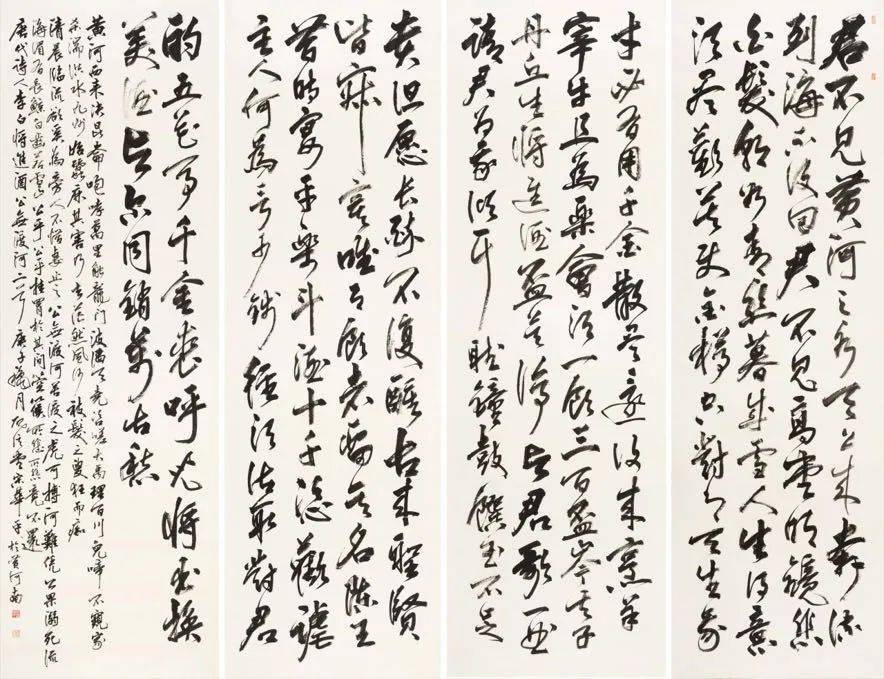 君不見黃河之水天上来奔流
到海不復回君不見高堂明鏡悲
白髮朝如青絲暮成雪人生得意
須盡歡莫使金樽空對月天生我
材必有用千金散盡還復来烹羊
宰牛且為樂會須一飲三百盃岑夫子
丹丘生將進酒盃莫停與君歌一曲
請君為我傾耳聽鐘鼓饌玉不足
貴但願長醉不復醒古来聖賢
皆寂寞唯有飲者留其名陳王
昔時宴平樂斗酒十千恣歡謔
主人何為言少錢徑須沽取對君
酌五花馬千金裘呼兒將出換
美酒與爾同銷萬古愁
黃河西来决崑崙咆哮萬里觸龍門波滔天堯咨嗟大禹理百川兒啼不窺家
殺湍洪水九州始蠶麻其害乃去茫然風沙被髮之叟狂而痴
清晨臨流欲奚為旁人不惜妻止之公無渡河苦渡之虎可搏河難憑公果溺死流
海湄有長鯨白齒若雪山公乎公乎挂罥於其間箜篌所悲竟不還
唐代詩人李白將進酒公無渡河二首庚子月宋華平於黃河南